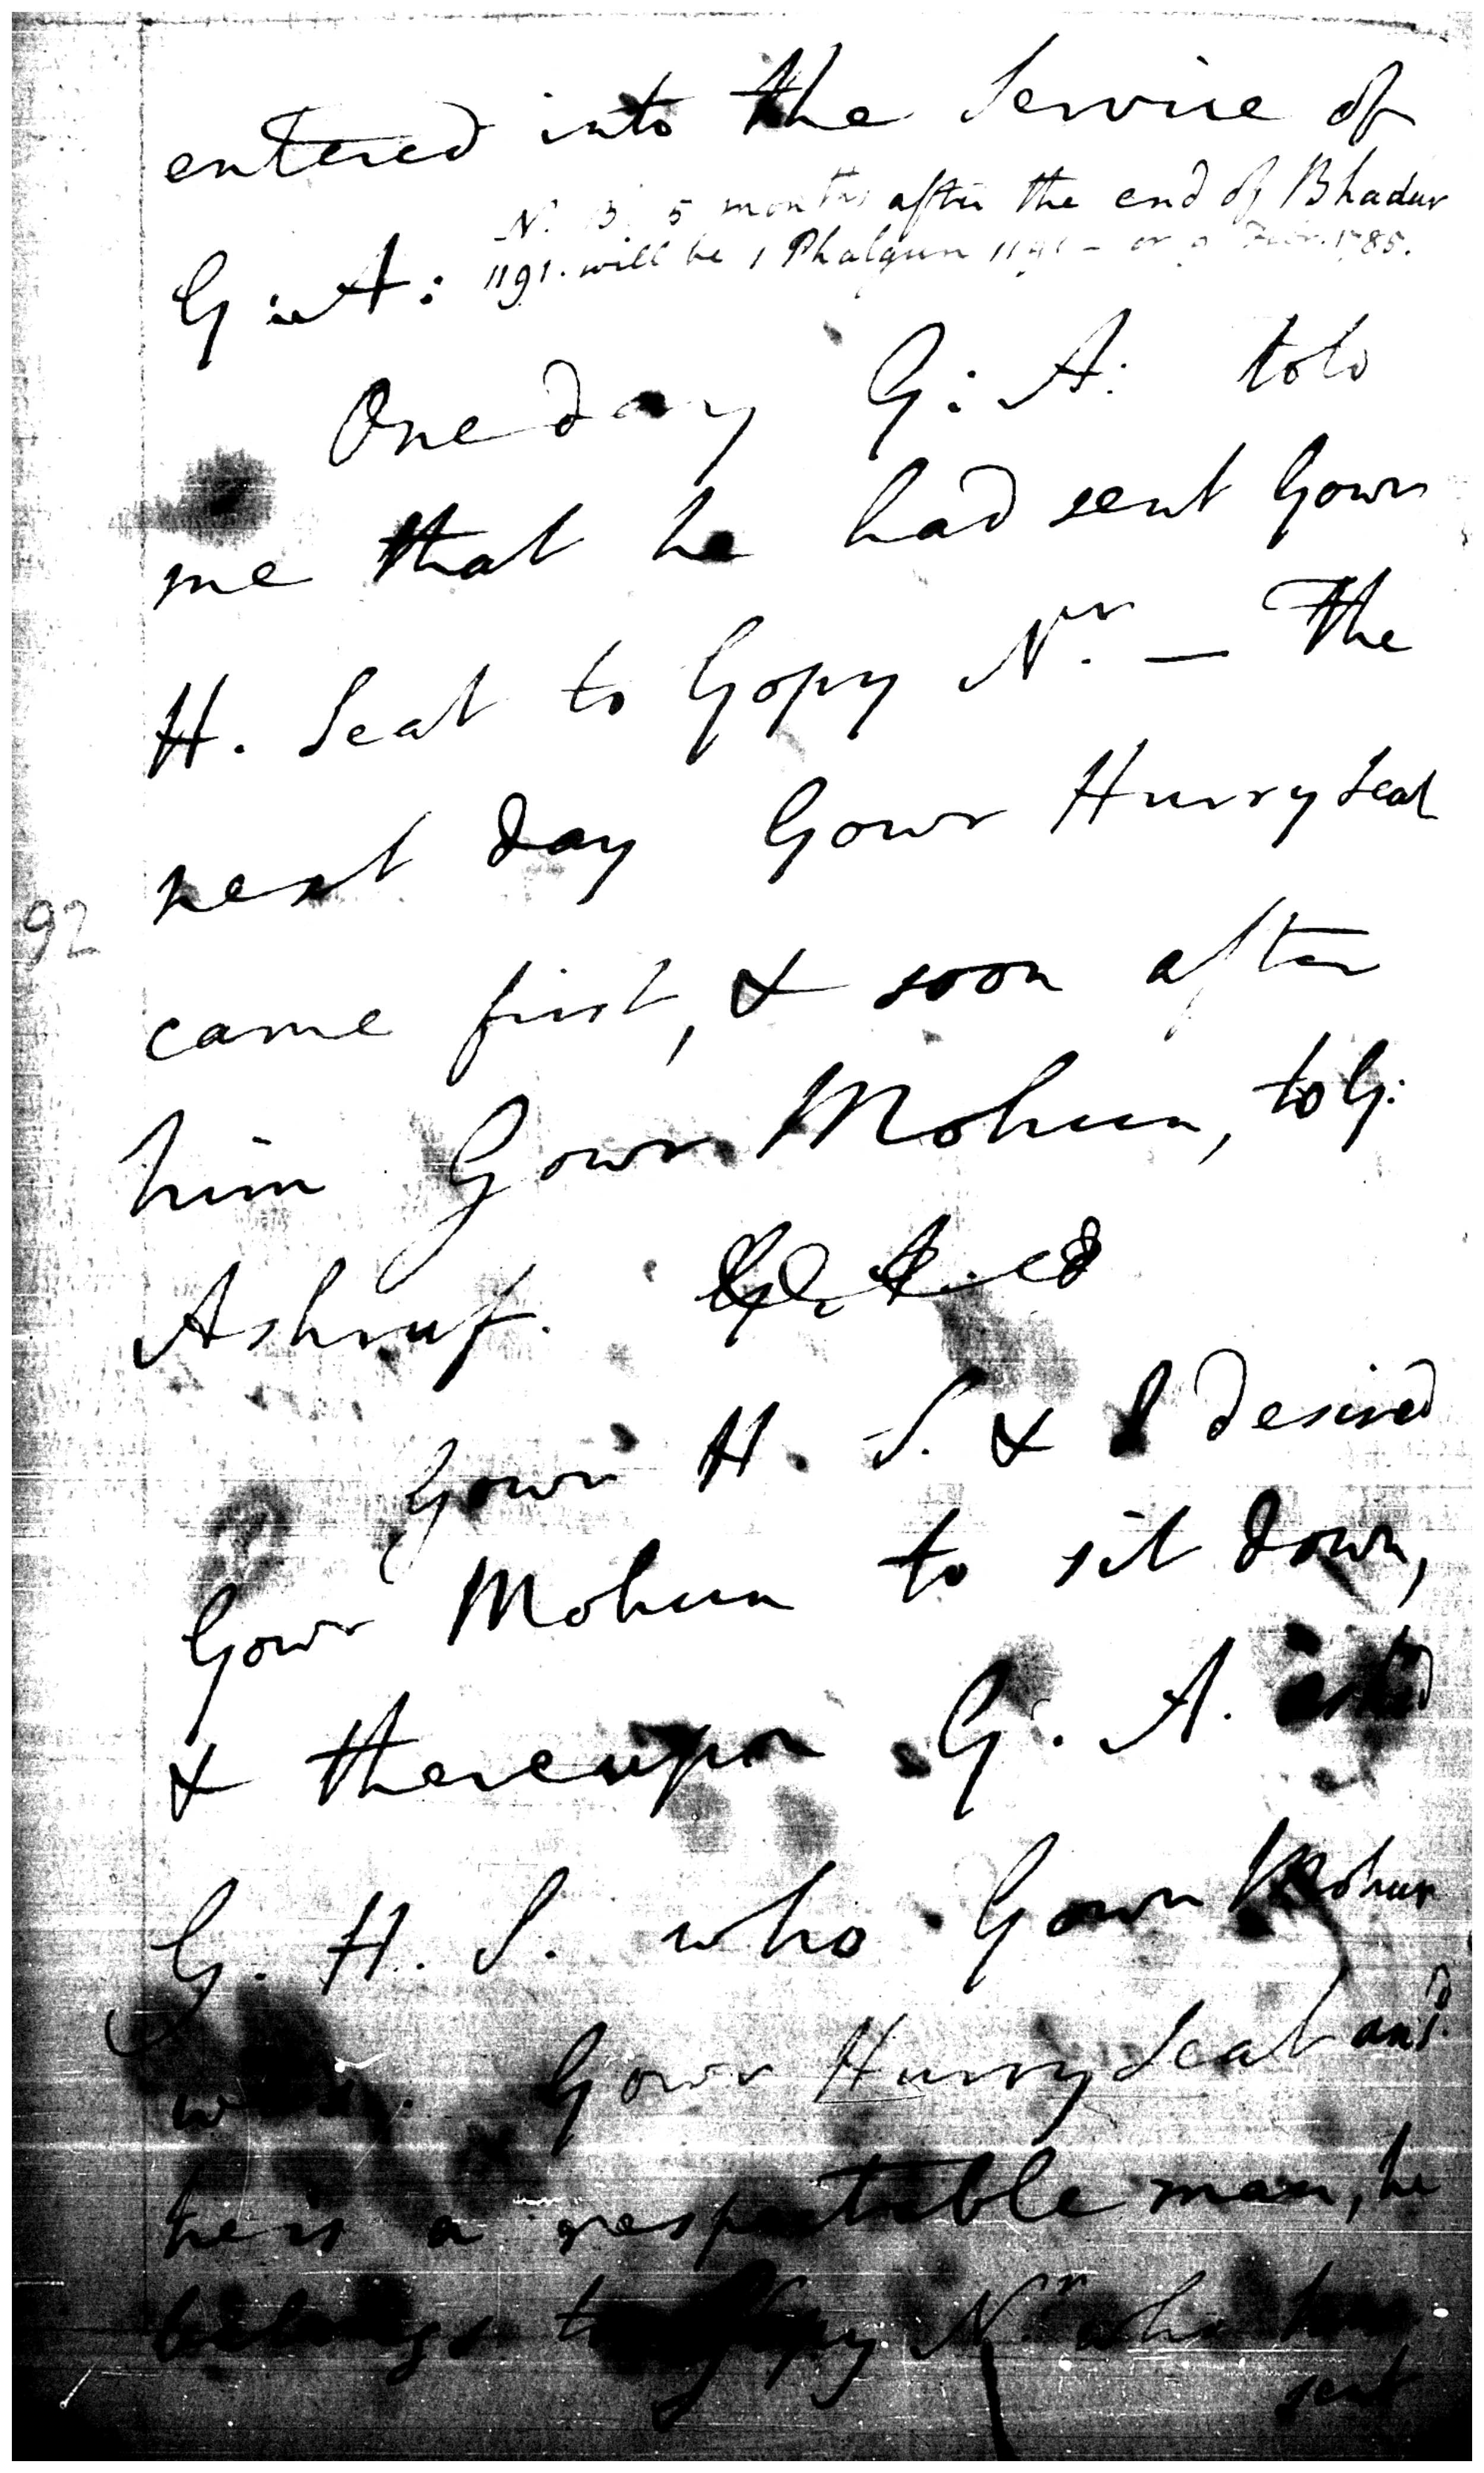 entered into the Service of
N. B. 5 months after the end of Bhadur
1191. will be 1 Phalgun 1191 - or 9 Febr. 1785.
G: A:
One day G: A: told
me that he had sent Gowr
H. Seat to Gopy Nr. — The
next day Gowr Hurry Seat
came first, & soon after
him Gowr Mohun, to G:
Ashruf.
Gowr H. S. & I desired
Gowr Mohun to sit down,
& thereupon G. A. asked
G. H. S. who Gowr Mohun
was. Gowr Hurry Seat ansd.
he is a respectable man, he
belongs to Gopy Nr. who has
sent
92